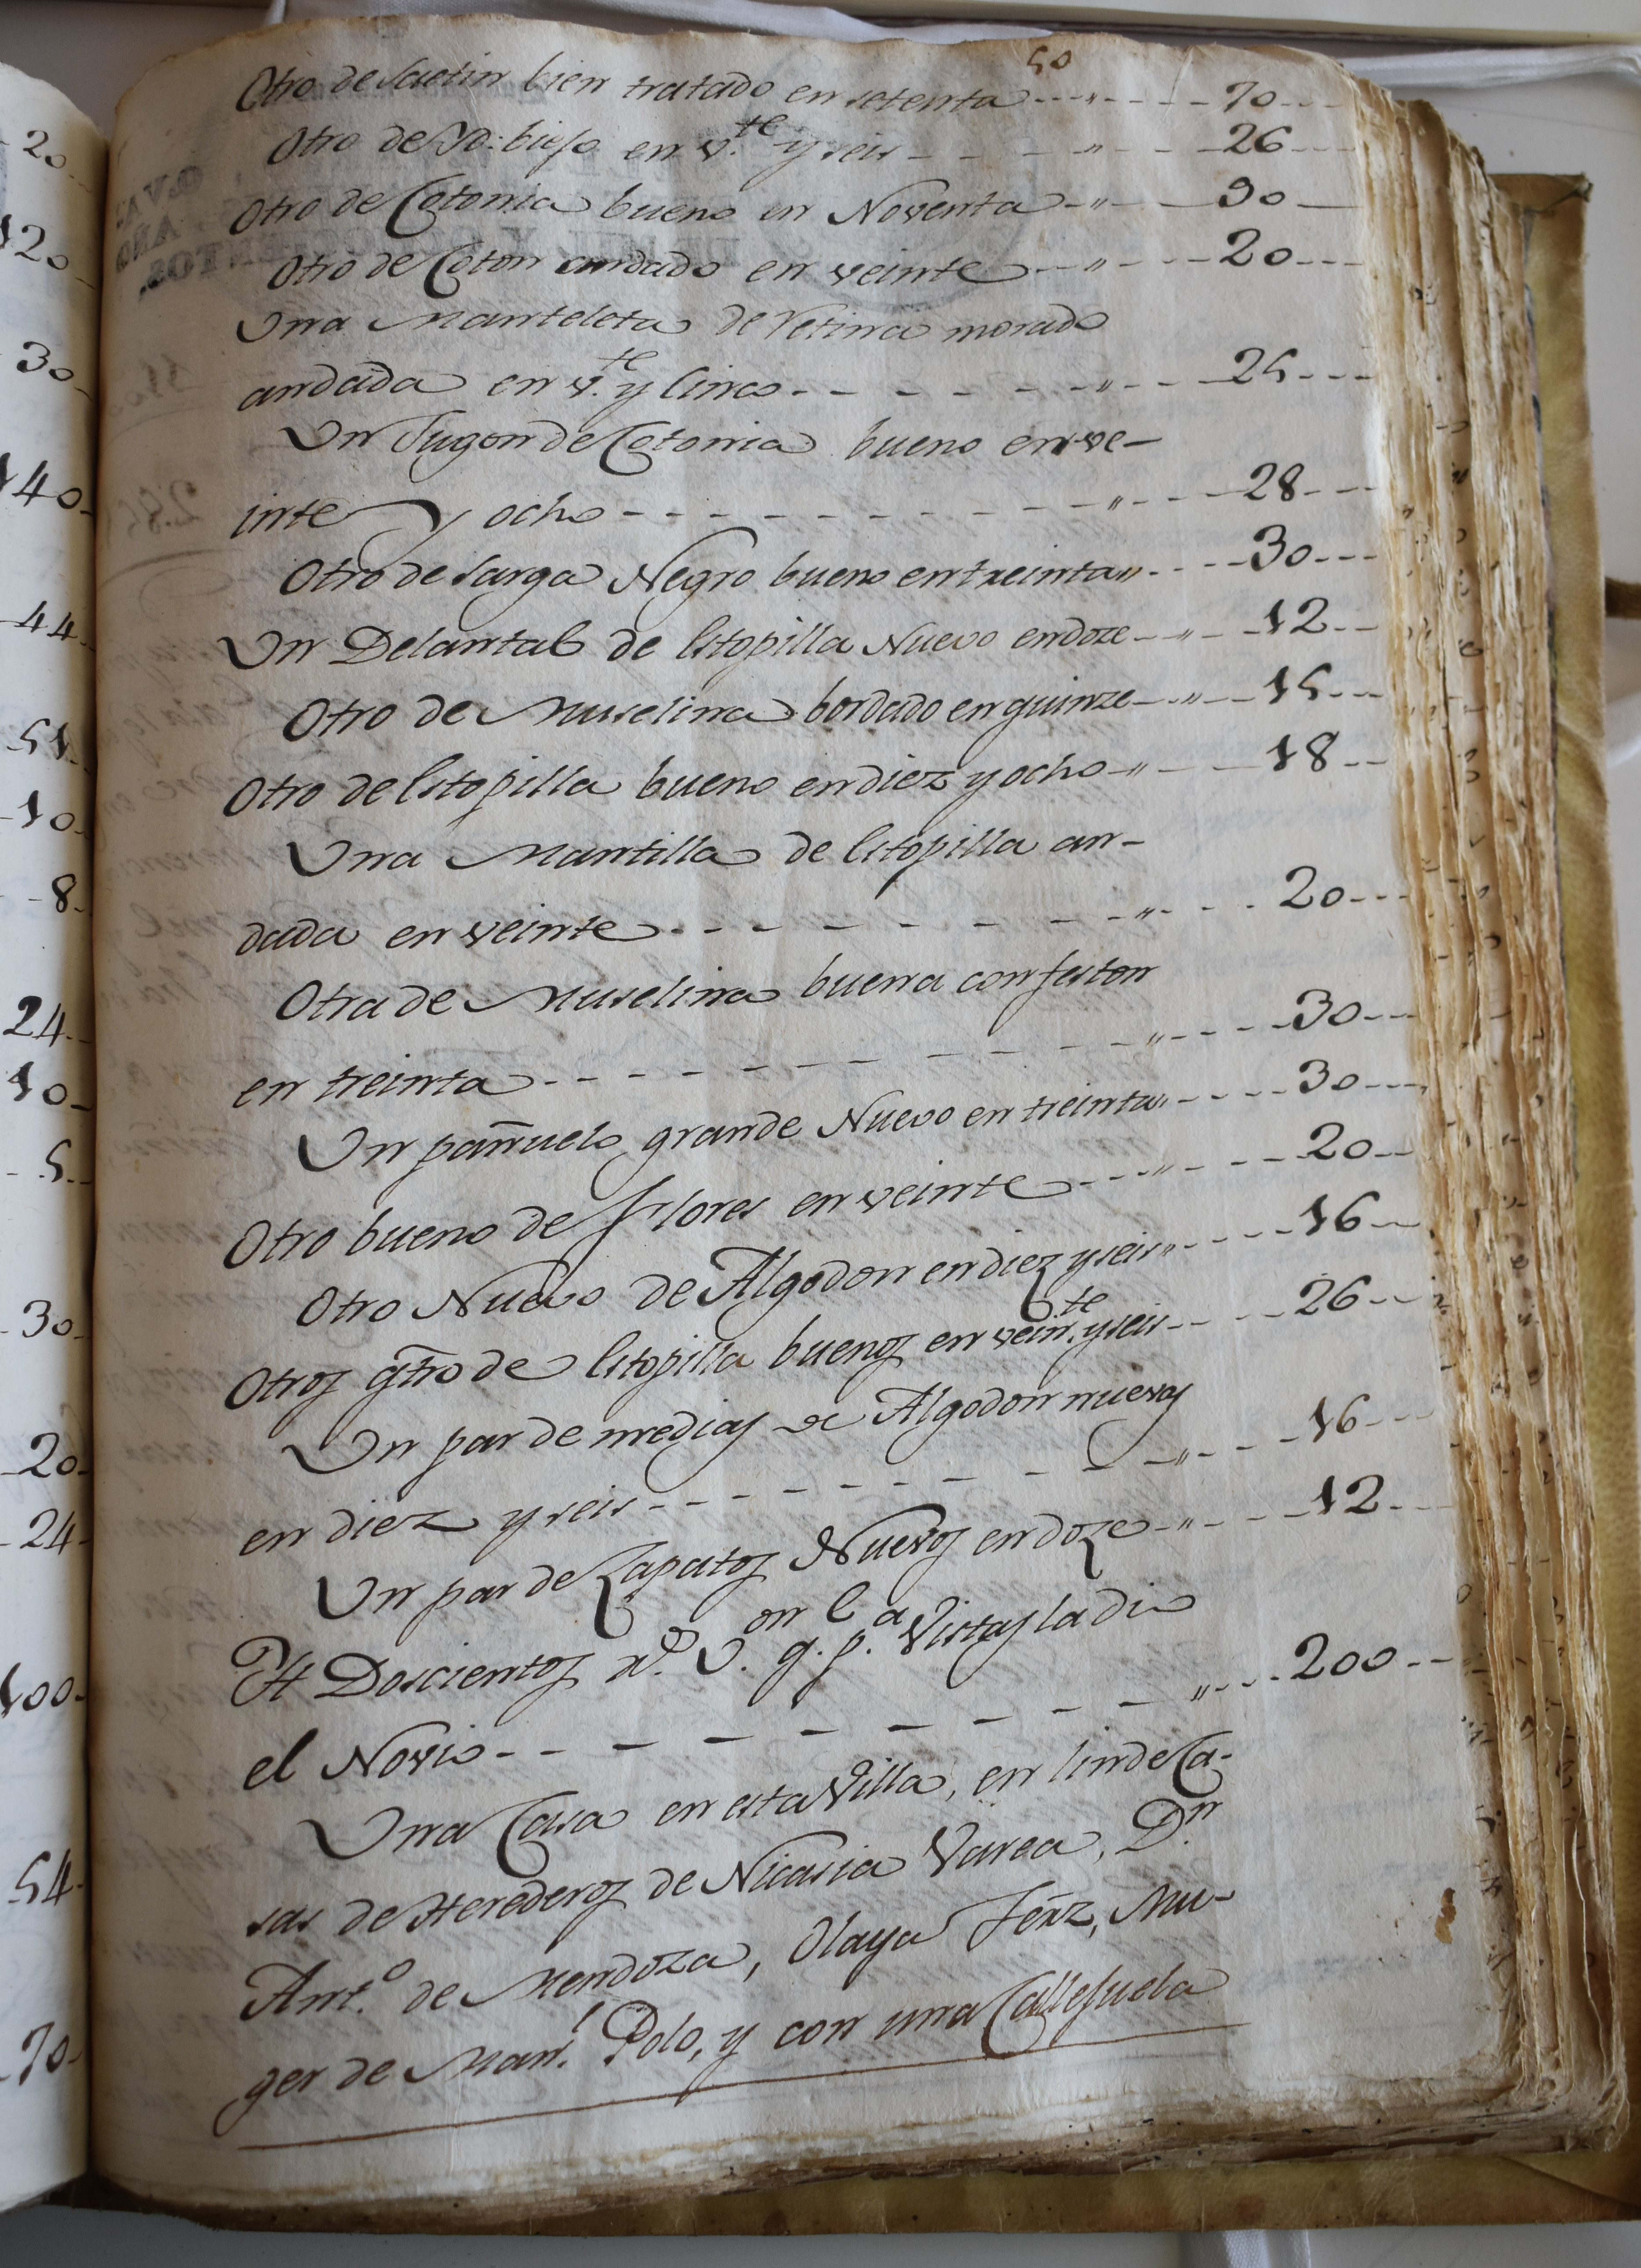 50
Otro de Saetin bien tratado en setenta 70
Otro de Yd: biejo en v.te y seis 26
Otro de Cotonia bueno en Noventa 90
Otro de Coton andado en veinte 20
Una Manteleta de Retina morado
andada en v.te y Cinco 25
Un Jugon de Cotonia bueno en ve-
inte y ocho 28
Otro de sarga Negro bueno en treinta 30
Un Delantal de estopilla Nuevo en doze 12
Otro de Muselina bordado en quinze 15
Otro de estopilla bueno en diez y ocho 18
Una Mantilla de estopilla an-
dada en veinte 20
Otra de Muselina buena con feston
en treinta 30
Un pañuelo grande Nuevo en treinta 30
Otro bueno de Flores en veinte 20
Otro Nuevo de Algodon en diez y seis 16
Otros qtro de estopilla buenos en vein.te y seis 26
Un par de medias de Algodon nuevas
en diez y seis 16
Un par de Zapatos Nuevos en doze 12
Yt Doscientos r.s v.on q.e p.a Vistas la dio
el Novio 200
Una Casa en esta Villa, en linde Ca-
sas de Herederos de Nicasia Varea, D.n
Ant.o de Mendoza, Olaya Fernz, Mu-
ger de Man.l Polo, y con una Callejuela
20
120
30
140
44
51
10
8
24
10
5
30
20
24
100
54
70